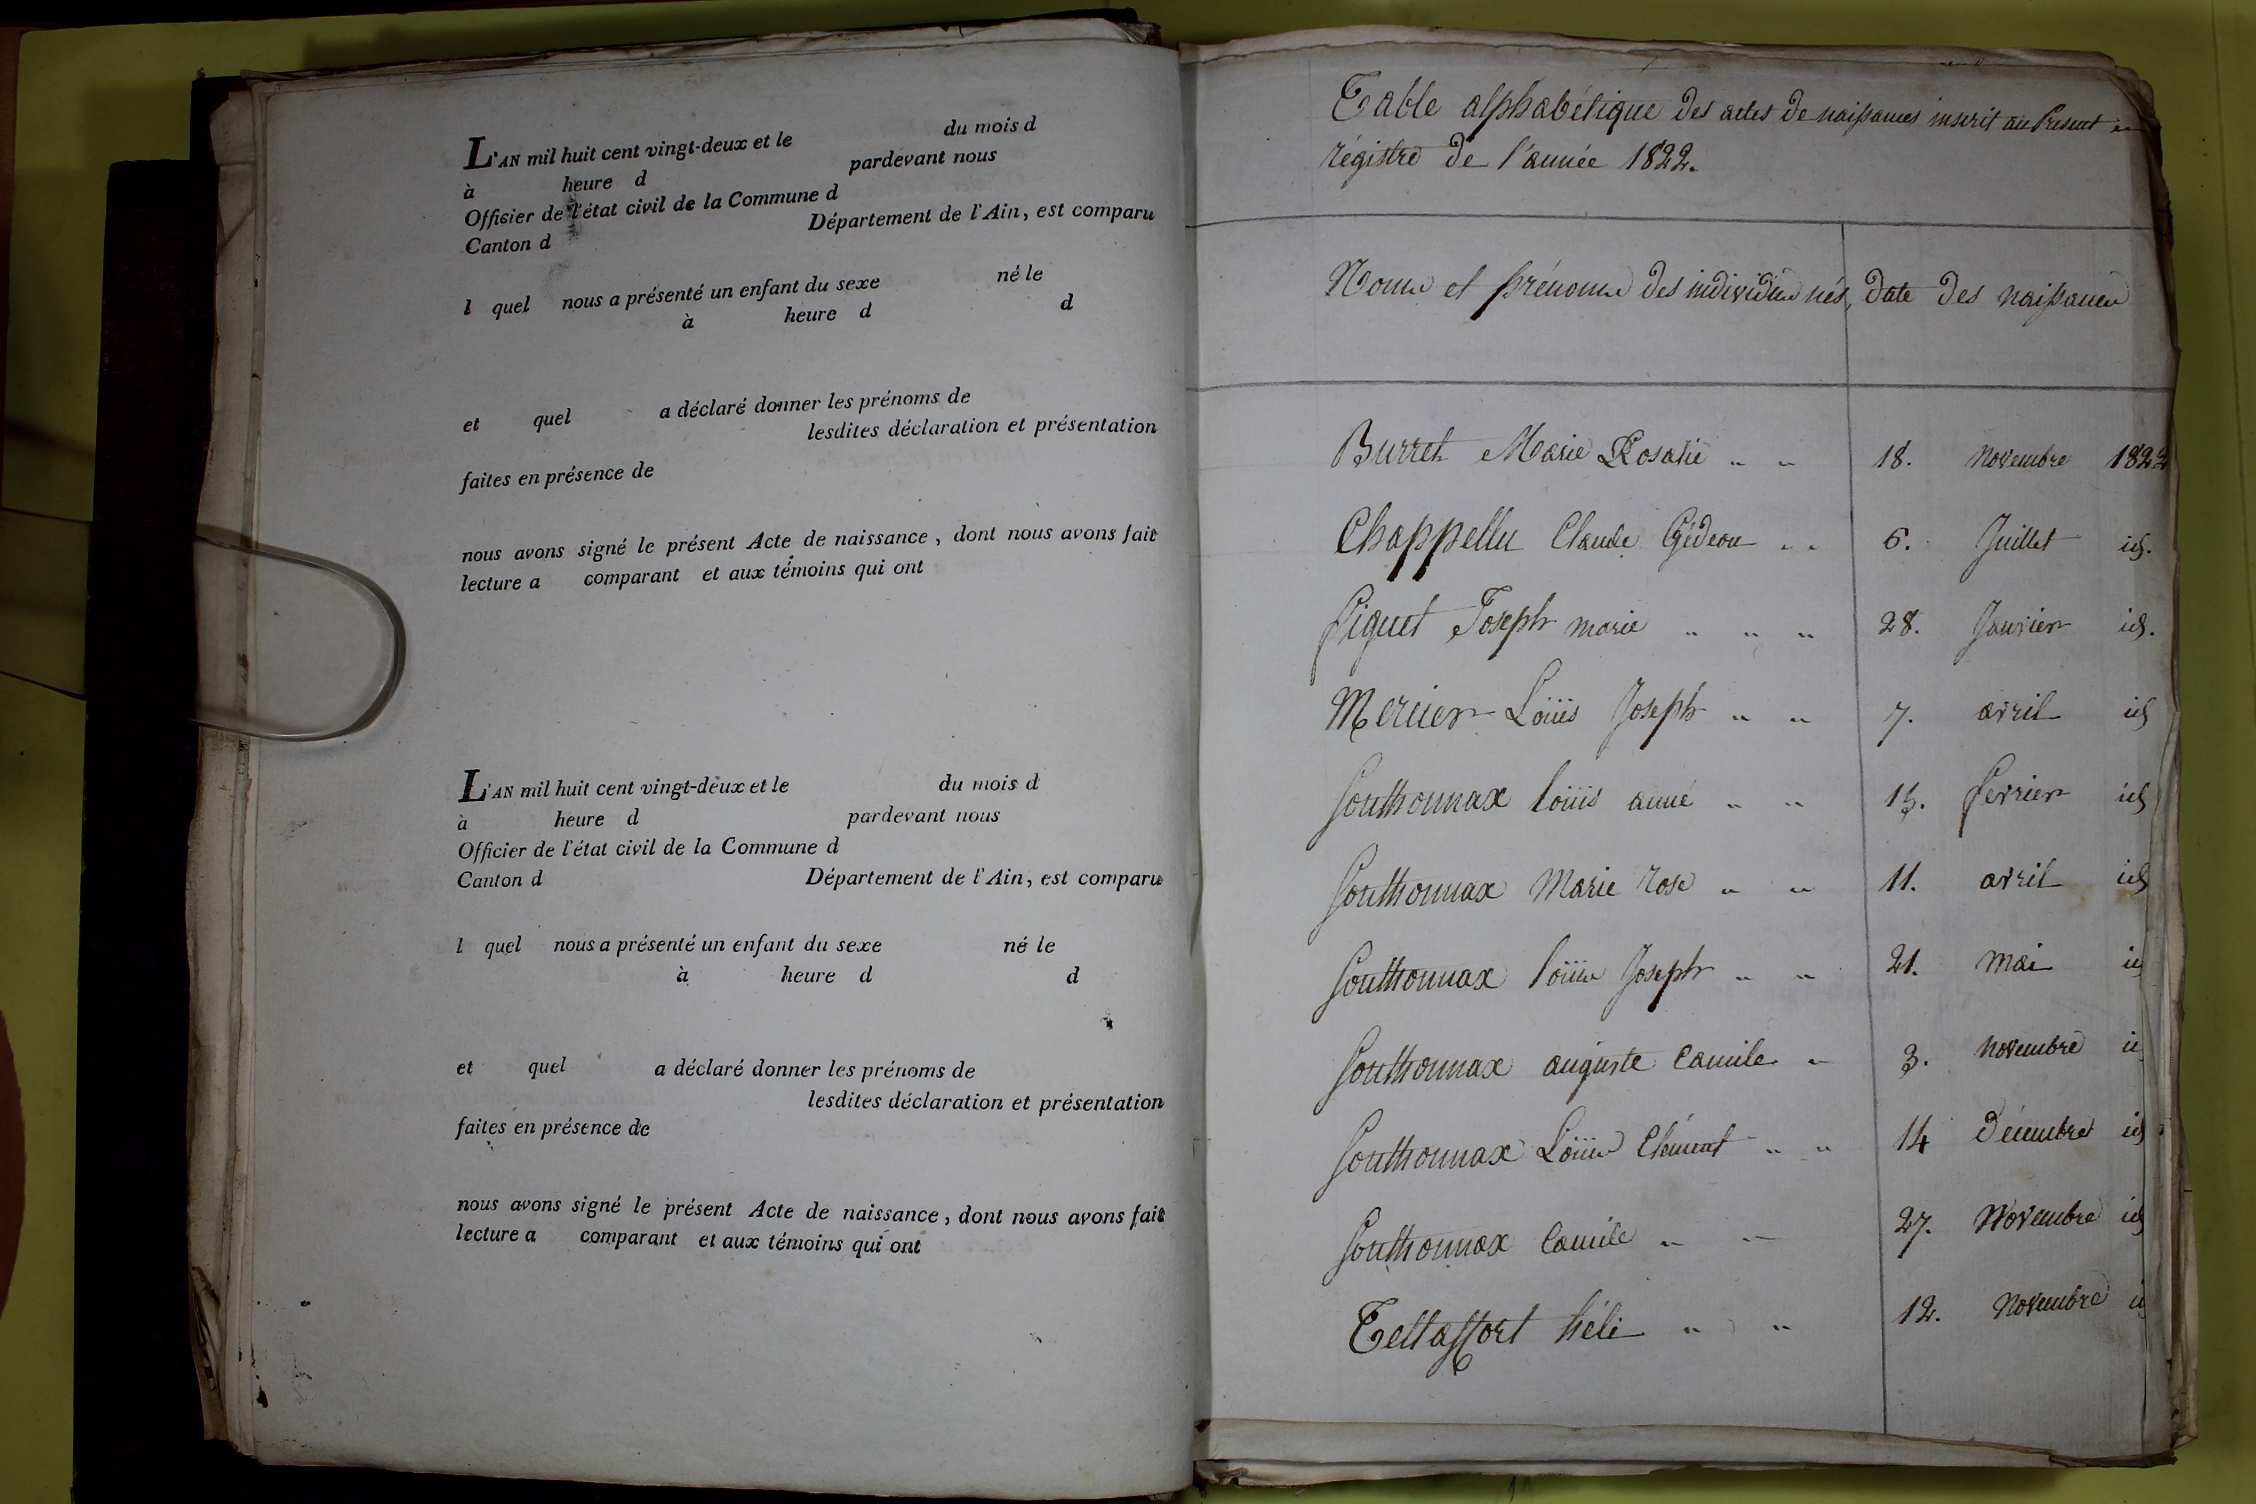 L'AN mil huit cent vingt-deux et le du mois d
à heure d pardevant nous
Officier de l'état civil de la Commune d
Canton d Département de l'Ain, est comparu
l quel nous a présenté un enfant du sexe né le
à heure d d
et quel a déclaré donner les prénoms de
lesdites déclaration et présentation
faites en présence de
nous avons signé le présent Acte de naissance, dont nous avons fait
lecture a comparant et aux témoins qui ont
L'AN mil huit cent vingt-deux et le du mois d
à heure d pardevant nous
Officier de l'état civil de la Commune d
Canton d Département de l'Ain, est comparu
l quel nous a présenté un enfant du sexe né le
à heure d d
et quel a déclaré donner les prénoms de
lesdites déclaration et présentation
faites en présence de
nous avons signé le présent Acte de naissance, dont nous avons fait
lecture a comparant et aux témoins qui ont
Table alphabétique des actes de naissances inscrit au Present
régistre de l'année 1822.
Noms et prénoms des individus nés, date des naissances
Burret Marie Rosalie " " 18. Novembre 1822
Chappellu Claude Gédeon " " 6. Juillet id.
piquet Joseph marie " " " 28. Janvier id.
Mercier Loüis Joseph " " 7. avril id
Southonnax loüis anne " " 15. fevrier id
Southonnax Marie rose " " 11. avril id
Southonnax loüis Joseph " " 21. mai id
Southonnax auguste Camile " 3. Novembre id
Southonnax Loüis Clément " " 14 décembre id
Southonnax Camile " " 27. Novembre id
héli " " 12. Novembre id